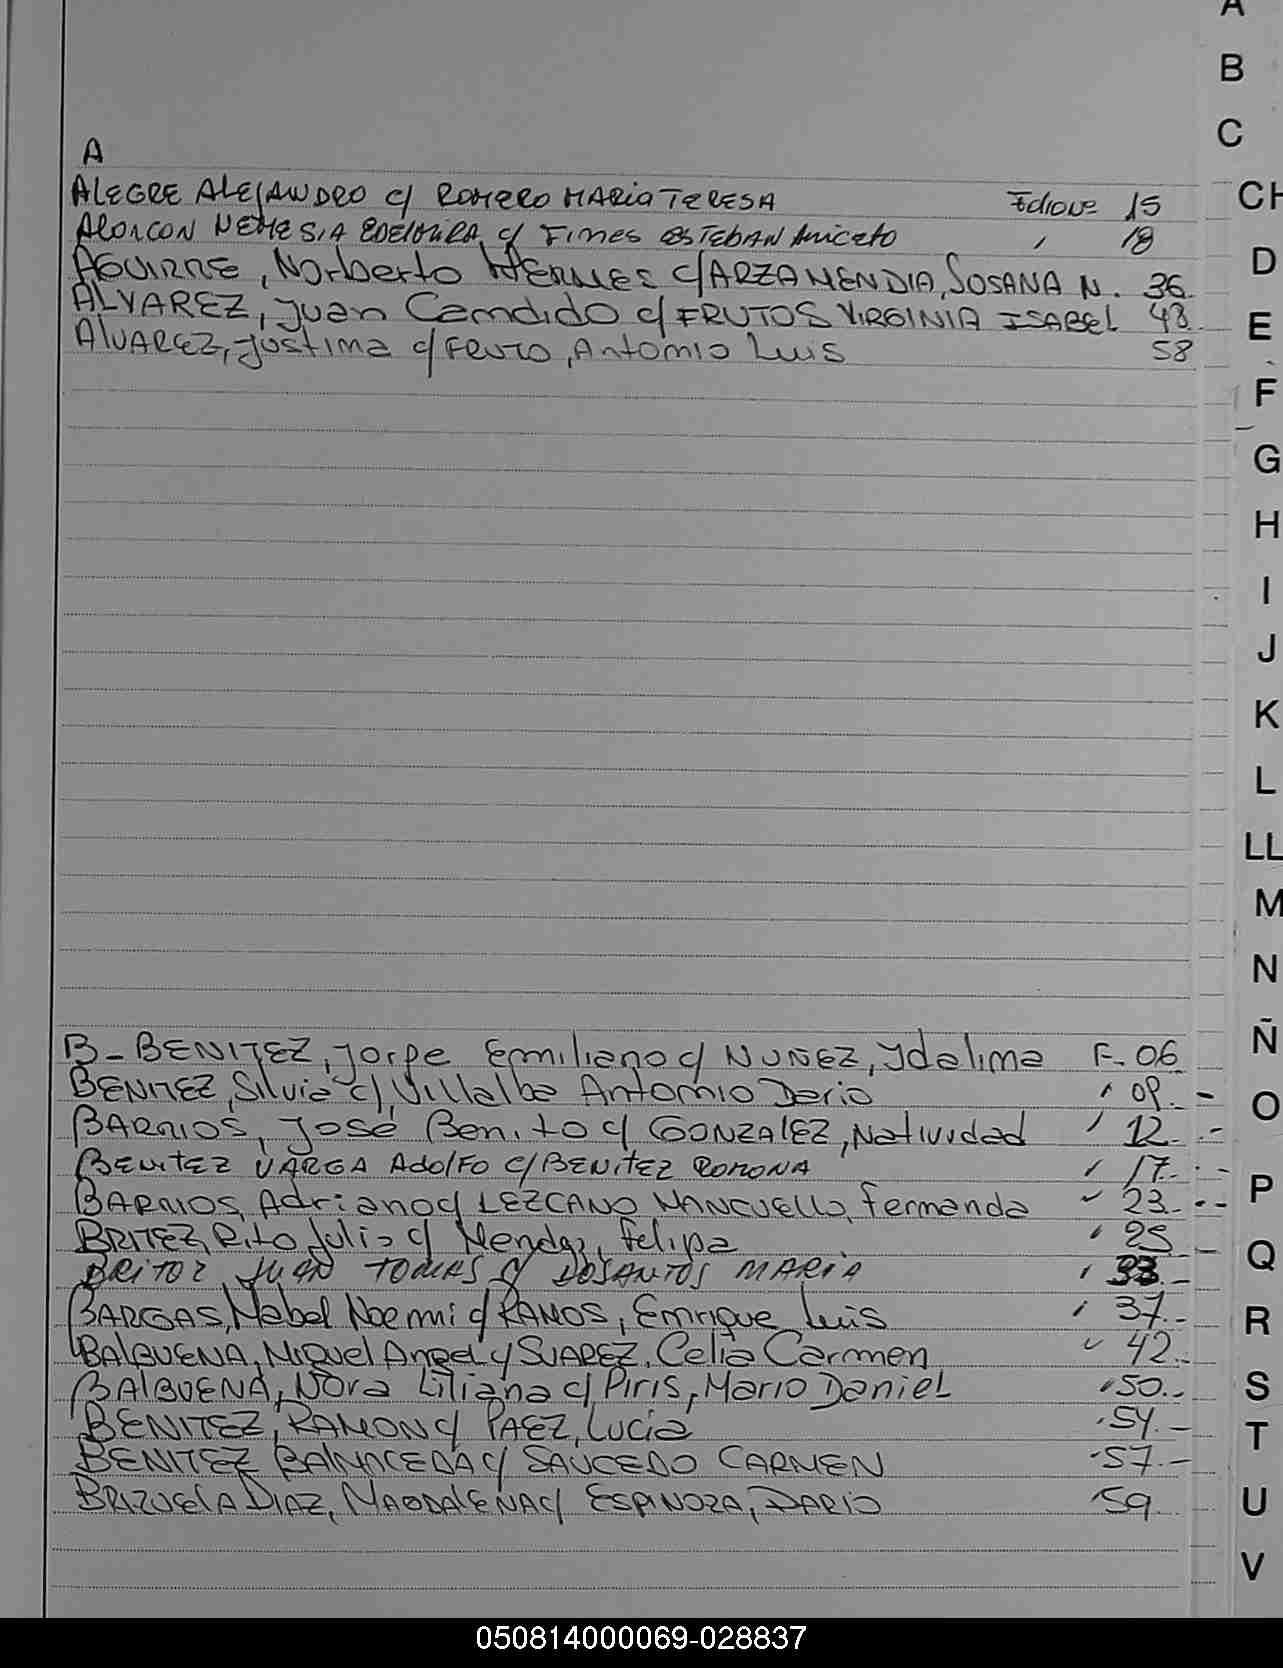 A
B
C
CH
D
E
F
G
H
I
J
K
L
LL
M
N
Ñ
O
P
Q
R
S
T
U
V
A
ALEGRE ALEJANDRO c/ ROMERO MARIA TERESA 15
NEMESIA c/ ESTEBAN ANICETO 18
AGUIRRE, Norberto HERMES c/ ARZAMENDIA, SUSANA N. 36
ALVAREZ, Juan Candido c/ FRUTOS VIRGINIA ISABEL 48
ALVAREZ, Justina c/ FRUTO, Antonio Luis 58
B - BENITEZ, Jorge Emiliano c/ NUÑEZ, Ydalina F- 06
BENITEZ, Silvia c/ Villalba Antonio Dario " 09.-
BARRIOS, José Benito c/ GONZALEZ, Natividad " 12.-
BENITEZ VARGA ADOLFO c/ BENITEZ ROMONA " 17.-
BARRIOS, Adriano c/ LEZCANO MANCUELLO, Fernanda " 23.-
BRITEZ, Rito Julio c/ Mendez, Felipa " 25.-
BRITOZ JUAN TOMAS c/ DOSANTOS MARIA " 33.-
BARGAS, Mabel Noemi c/ RAMOS, Enrique Luis " 37.-
BALBUENA, Miguel Angel c/ SUAREZ, Celia Carmen " 42.-
BALBUENA, Nora Liliana c/ PIRIS, Mario Daniel " 50.-
BENITEZ, RAMON c/ PAEZ, Lucia " 54.-
BENITEZ BALMACEDA c/ SAUCEDO CARMEN " 57.-
BRIZUELA DIAZ, MAGDALENA c/ ESPINOZA, DARIO " 59
050814000069-028837